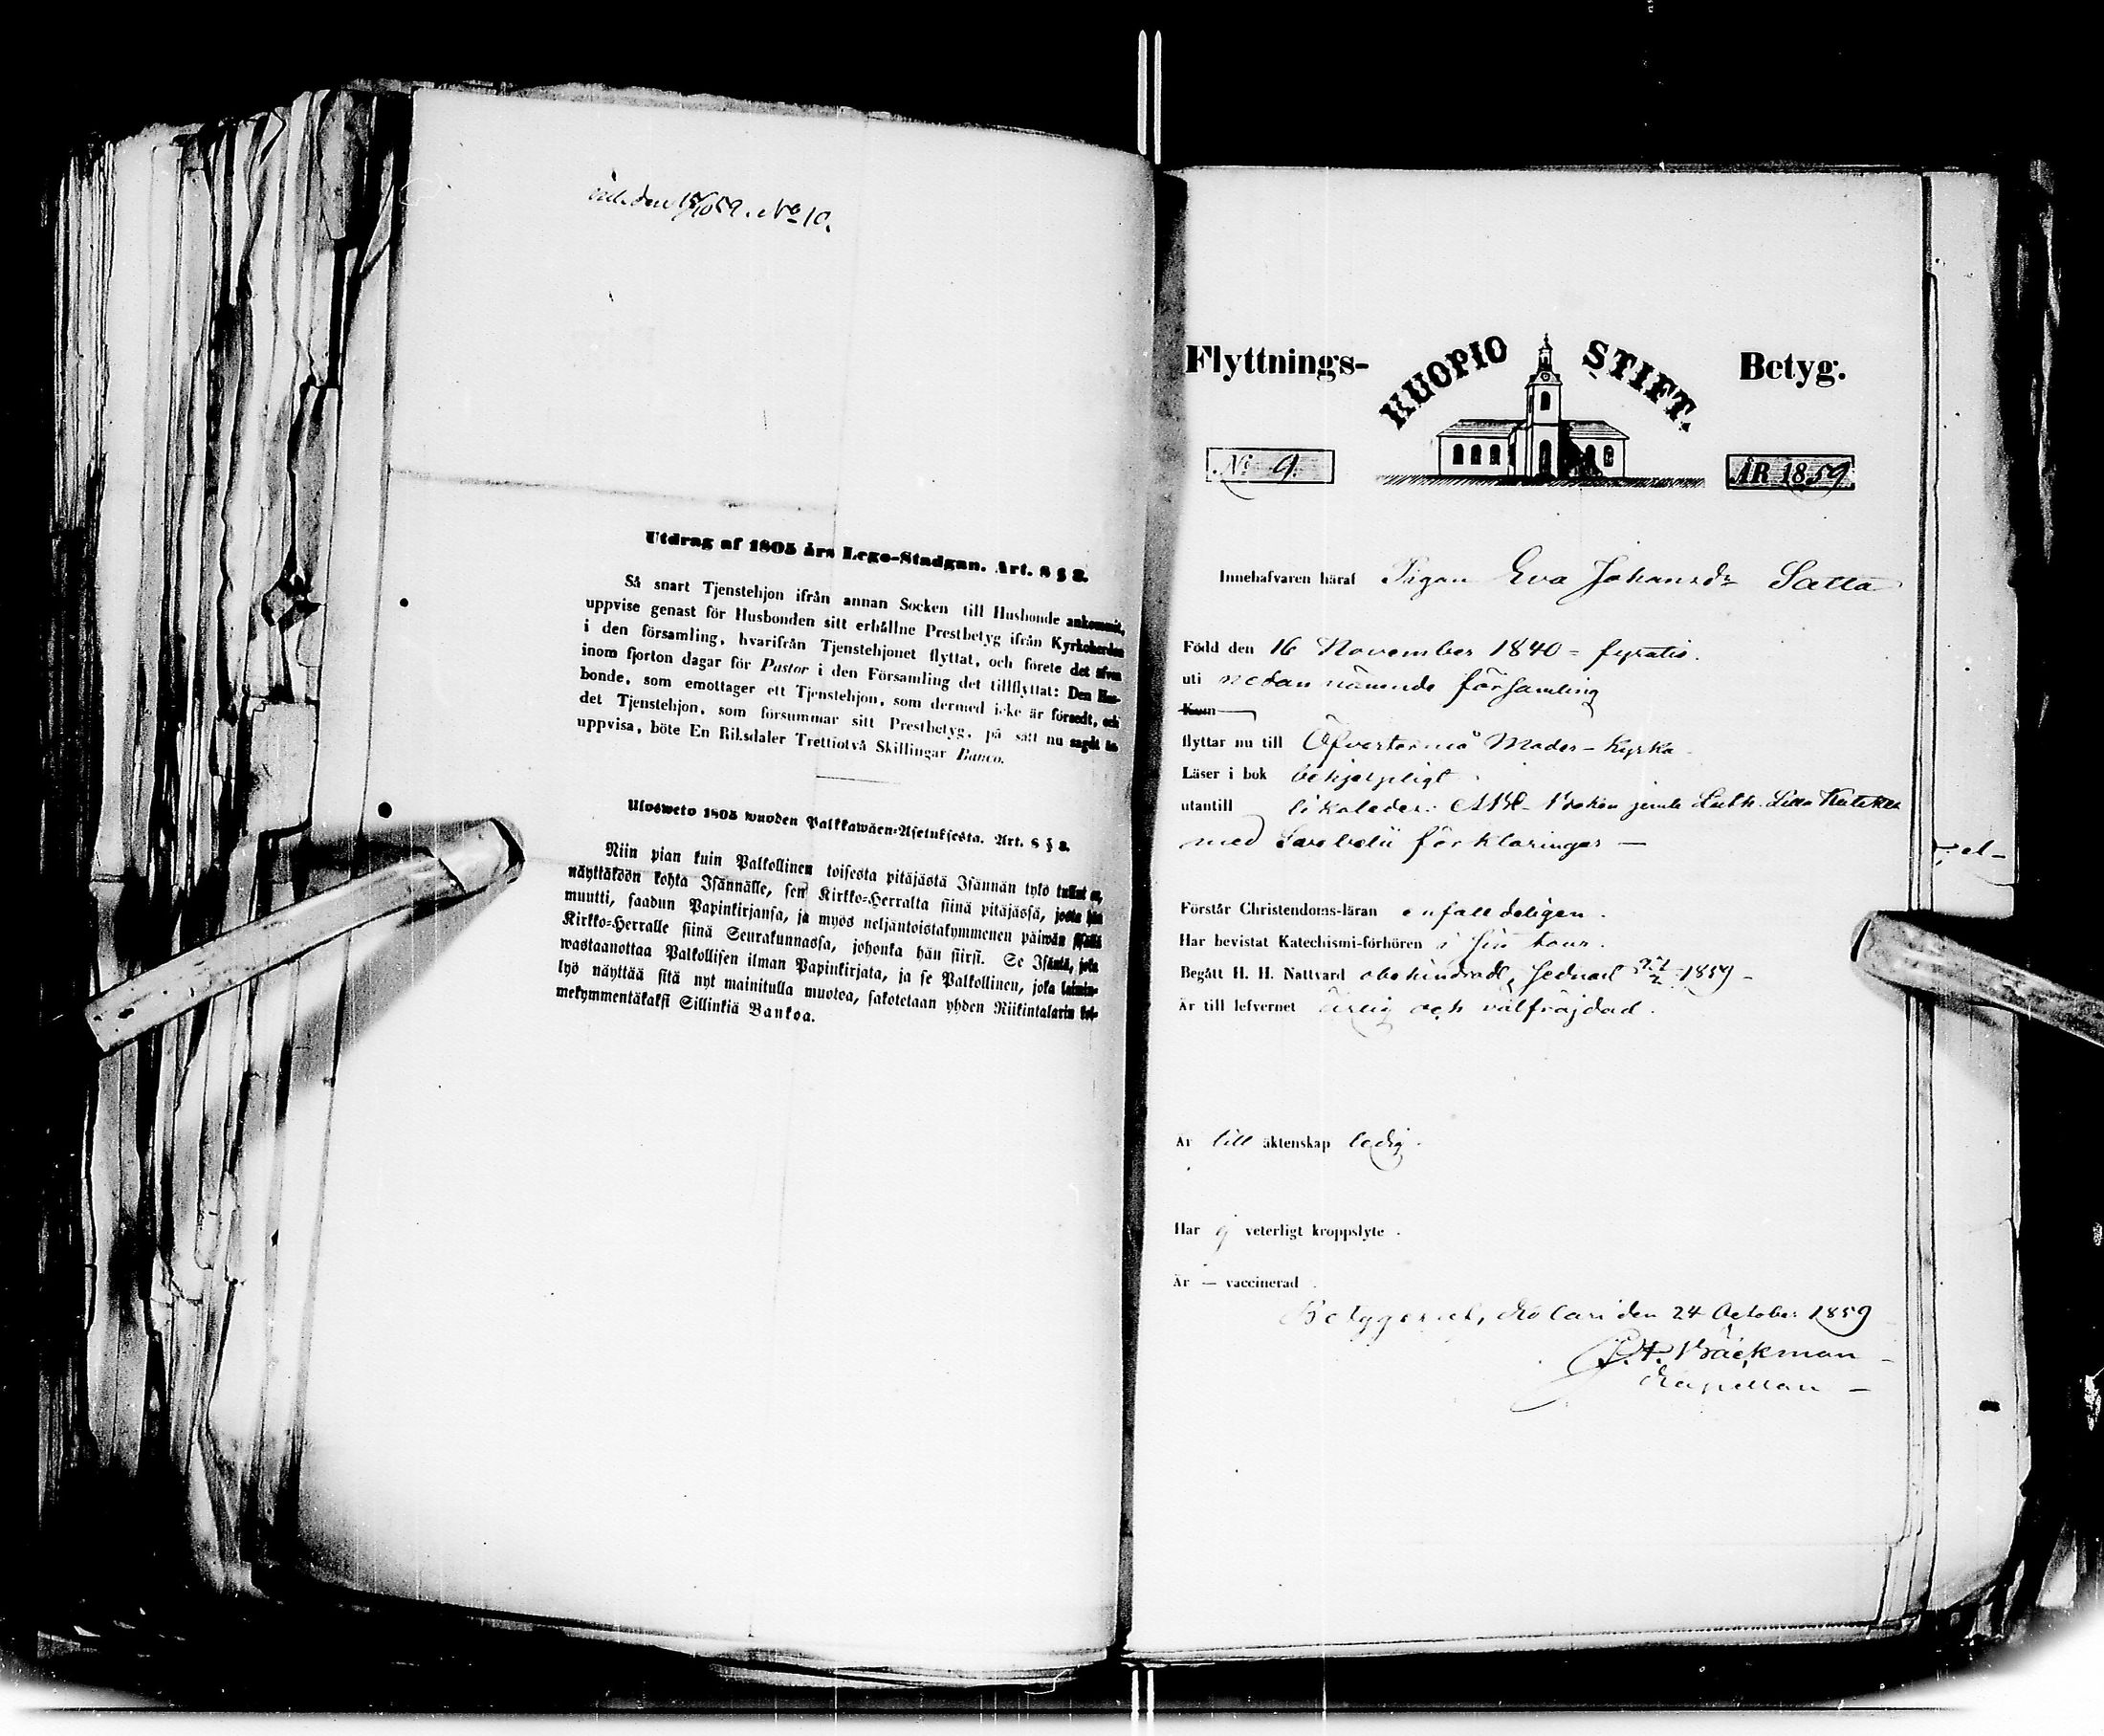 inl. den 15/10 59. No 10.
Utdrag af 1805 års Lego-Stadgan. Art. 8 § 8.
Så snart Tjenstehjon ifrån annan Socken till Husbonde ankommit,
uppvise genast för Husbonden sitt erhållne Prestbetyg ifrån Kyrkoherden
i den församling, hvarifrån Tjenstehjonet flyttat, och förete det äfven
inom fjorton dagar för Pastor i den Församling det tillflyttat: Den Hus-
bonde, som emottager ett Tjenstehjon, som dermed icke är försedt, och
det Tjenstehjon, som försummar sitt Prestbetyg, på sätt nu sagdt är
uppvisa, böte En Riksdaler Trettiotvå Skillingar Banco.
Ulosweto 1805 wuoden Palkkawäen-Asetuksesta. Art. 8 § 8.
Niin pian kuin Palkollinen toisesta pitäjästä Isännän tykö tullut on,
näyttäköön kohta Isännälle, sen Kirkko-Herralta siinä pitäjässä, josta hän
muutti, saadun Papinkirjansa, ja myös neljäntoistakymmenen päiwän sisällä
Kirkko-Herralle siinä Seurakunnassa, johonka hän siirsi. Se Isäntä, joka
wastaanottaa Palkollisen ilman Papinkirjata, ja se Palkollinen, joka laimin-
lyö näyttää sitä nyt mainitulla muotoa, sakotetaan yhden Riikintalarin kol-
mekymmentäkaksi Sillinkiä Bankoa.
Flyttnings- KUOPIO STIFT. Betyg.
No 9. ÅR 1859
Innehafvaren häraf Pigan Eva Johansdr Satta
Född den 16 November 1840 = fyratio.
uti nedan nämnde församling
Kom
flyttar nu till Öfvertorneå Moder-Kyrka
Läser i bok behjelpligt
utantill likaledes ABC-Boken jemte Luth. Lilla Kateches
med Svebelii förklaringar —
Förstår Christendoms-läran enfaldeligen.
Har bevistat Katechismi-förhören i sin tour.
Begått H. H. Nattvard obehindradt, sednast 27/2 1859 -
Är till lefvernet ärlig och välfräjdad.
Är till äktenskap ledig.
Har ej veterligt kroppslyte.
Är — vaccinerad
Betygar, Kolari den 24 October 1859
Bäckman
Kapellan —